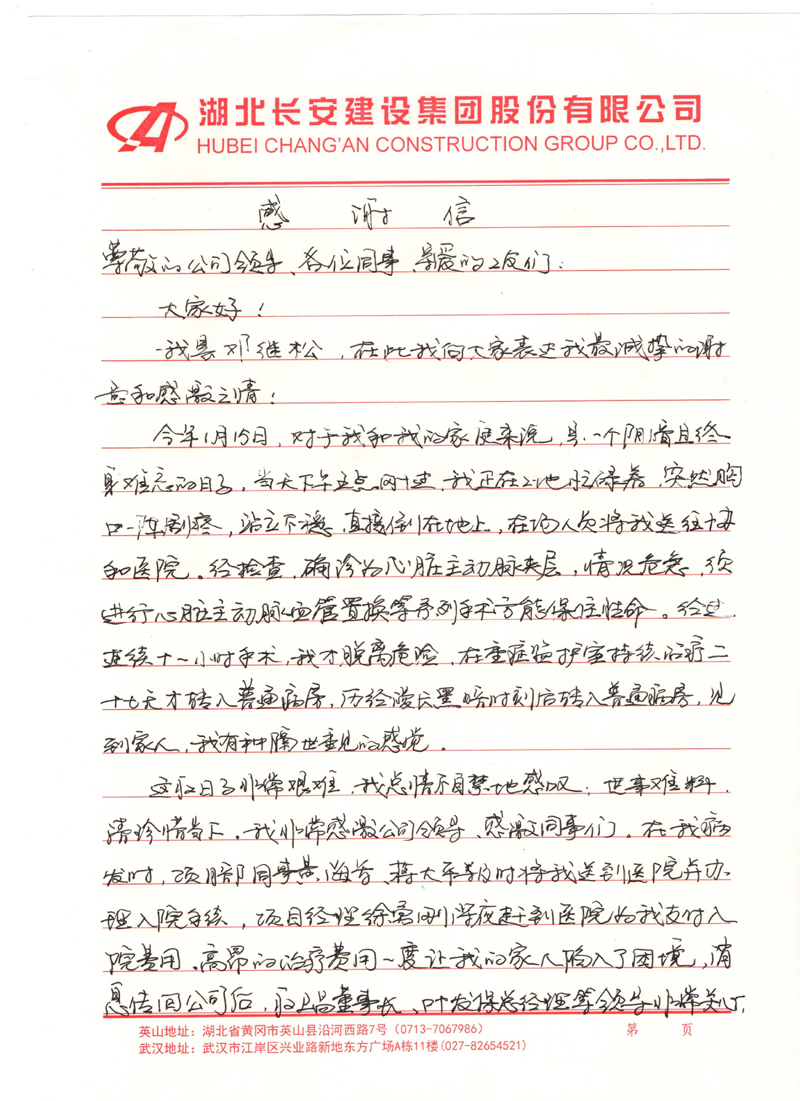 湖北长安建设集团股份有限公司
HUBEI CHANG'AN CONSTRUCTION GROUP CO.,LTD.
感 谢 信
尊敬的公司领导、各位同事、亲爱的工友们:
大家好!
我是邓继松,在此我向大家表达我最诚挚的谢
意和感激之情!
今年1月15日,对于我和我的家庭来说,是一个阴霾且终
身难忘的日子,当天下午五点刚过,我正在工地忙碌着,突然胸
口一阵剧疼,站立不稳,直接倒在地上,在场人员将我送往协
和医院。经检查,确诊为心脏主动脉夹层,情况危急,须
进行心脏主动脉血管置换等系列手术方能保住性命。经过
连续十一小时手术,我才脱离危险,在重症监护室持续治疗二
十七天才转入普通病房,历经漫长黑暗时刻后转入普通病房,见
到家人,我有种隔世重见的感觉。
这段日子非常艰难,我总情不自禁地感叹:世事难料,
请珍惜当下。我非常感激公司领导、感激同事们。在我病
发时,项目部同事 海 、蒋大 及时将我送到医院并办
理入院手续,项目经理徐 刚 夜赶到医院为我支付入
院费用。高昂的治疗费用一度让我的家人陷入了困境,消
息传回公司后, 董事长、叶发保总经理等领导非常关心,
英山地址:湖北省黄冈市英山县沿河西路7号(0713-7067986)
第 页
武汉地址:武汉市江岸区兴业路新地东方广场A栋11楼(027-82654521)